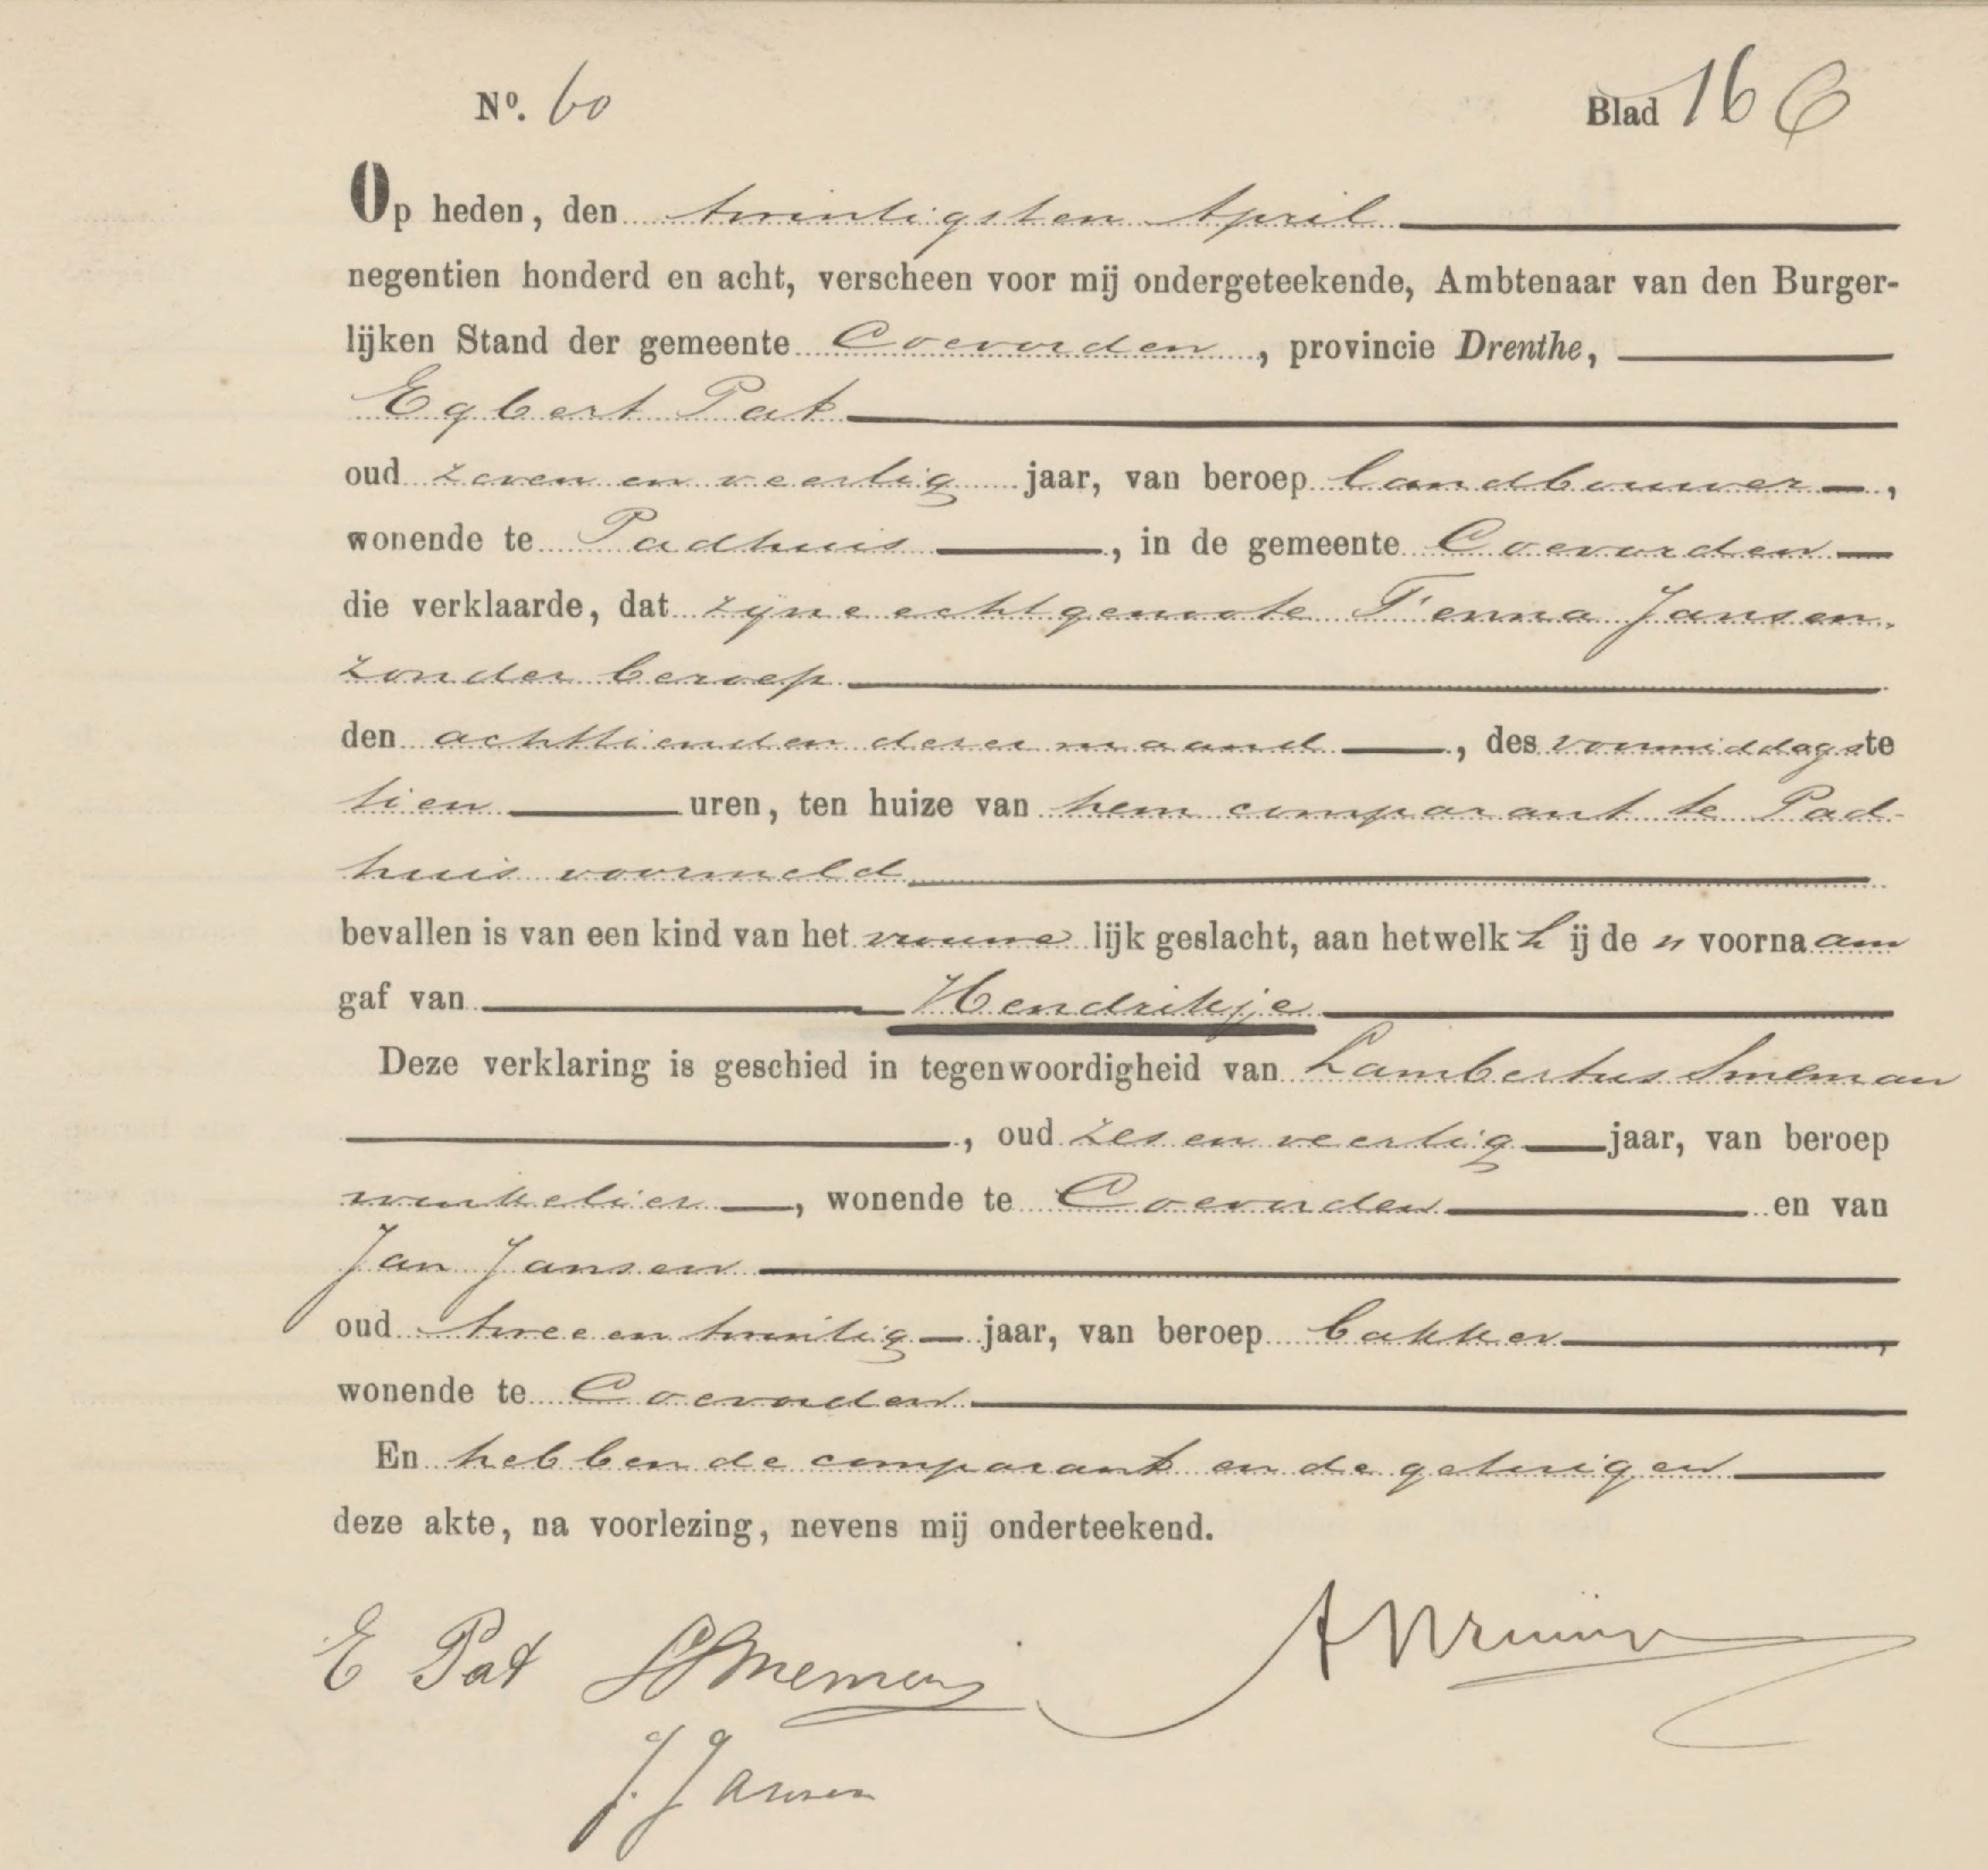 Nº. 60 Blad 16
Op heden, den twintigsten April
negentien honderd en acht, verscheen voor mij ondergeteekende, Ambtenaar van den Burger-
lijken Stand der gemeente Coevorden, provincie Drenthe,
Egbert Pat
oud zeven en veertig jaar, van beroep landbouwer,
wonende te Padhuis, in de gemeente Coevorden
die verklaarde, dat zijne echtgenoote Fenna Jansen
zonder beroep
den achttienden dezer maand, des voormiddags te
tien uren, ten huize van hem comparant te Pad-
huis voormeld
bevallen is van een kind van het vrouwelijk geslacht, aan hetwelk hij den voornaam
gaf van Hendrikje
Deze verklaring is geschied in tegenwoordigheid van Lambertus Smeman
, oud zes en veertig jaar, van beroep
winkelier, wonende te Coevorden en van
Jan Jansen
oud twee en twintig jaar, van beroep bakker,
wonende te Coevorden
En hebben de comparant en de getuigen
deze akte, na voorlezing, nevens mij onderteekend.
E Pat
J. Jansen